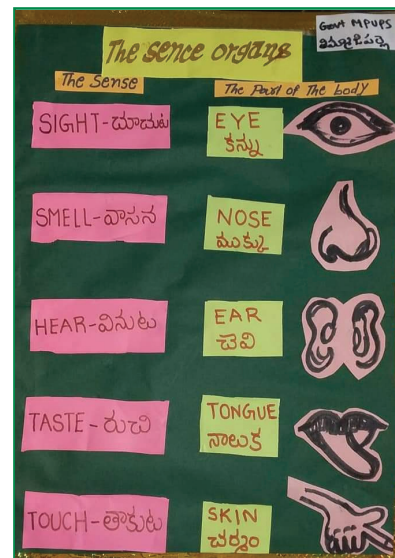 Govt MPUPS
The sence organs
The Sense
The Part of The body
SIGHT-చూచుట
EYE
కన్ను
SMELL-వాసన
NOSE
ముక్కు
HEAR-వినుట
EAR
చెవి
TASTE-రుచి
TONGUE
నాలుక
TOUCH-తాకుట
SKIN
చర్మం